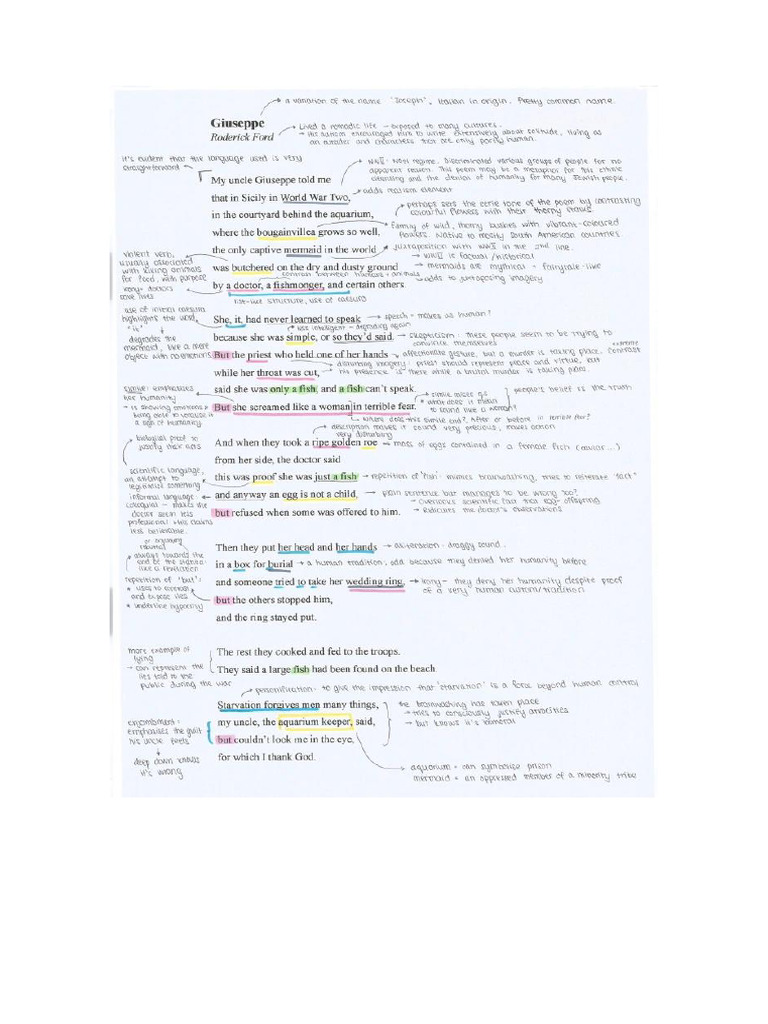 → a variation of the name 'Joseph', Italian in origin. Pretty common name.
Giuseppe
Roderick Ford
→ Lived a nomadic life – exposed to many cultures.
→ His autism encouraged him to write extensively about solitude, living as
an outsider and characters that are only partly human.
it's evident that the language used is very
straightforward
→ WWII: Nazi regime. Discriminated various groups of people for no
apparent reason. This poem may be a metaphor for this ethnic
cleansing and the denial of humanity for many Jewish people.
My uncle Giuseppe told me
→ adds realism element
that in Sicily in World War Two,
→ perhaps sets the eerie tone of the poem by contrasting
colourful flowers with their thorny stalks.
in the courtyard behind the aquarium,
→ family of wild, thorny bushes with vibrant-coloured
flowers. Native to mostly South American countries.
where the bougainvillea grows so well,
→ juxtaposition with WWII in the 2nd line.
the only captive mermaid in the world
→ WWII is factual/historical
→ mermaids are mythical + fairytale-like
→ adds to juxtaposing imagery
violent verb,
usually associated
with killing animals
for food, with purpose
irony: doctors
save lives
was butchered on the dry and dusty ground
common between humans + animals
by a doctor, a fishmonger, and certain others.
list-like structure, use of caesura
use of caesura
highlights the word
"it"
degrades the
mermaid, like a mere
object with no emotions
She, it, had never learned to speak
→ speech = makes us human?
use intelligent – degrading again
because she was simple, or so they'd said.
→ skepticism: these people seem to be trying to
convince themselves
But the priest who held one of her hands
→ affectionate gesture, but a murder is taking place. extreme contrast
→ disturbing imagery: priest should represent peace and virtue, but
his presence is there while a brutal murder is taking place
while her throat was cut,
said she was only a fish, and a fish can't speak.
people's belief is the truth
simile: emphasizes
her humanity
→ is showing emotions +
being able to vocalise it
a sign of humanity.
But she screamed like a woman in terrible fear.
→ what does it mean
to sound like a woman?
→ where does this simile end? After or before in terrible fear?
→ description makes it sound very precious, makes action
very disturbing
biological proof to
justify their acts
And when they took a ripe golden roe
→ mass of eggs contained in a female fish
from her side, the doctor said
scientific language,
an attempt to
legitimise something
this was proof she was just a fish
→ repetition of 'fish': mimics brainwashing, tries to reiterate "fact"
informal language:
colloquial – makes the
doctor seem less
professional + his claims
less believable.
and anyway an egg is not a child,
→ plain sentence but manages to be wrong too?
→ ridicules the doctor's observations
but refused when some was offered to him.
Then they put her head and her hands
→ alliteration: draggy sound.
→ always towards the
end of the stanza:
like a revelation
in a box for burial
→ a human tradition; odd because they denied her humanity before
repetition of 'but':
→ uses to contrast
and expose lies
→ underline hypocrisy
and someone tried to take her wedding ring,
→ irony – they deny her humanity despite proof
of a very human custom/tradition
but the others stopped him,
and the ring stayed put.
more example of
lying
→ can represent the
lies told to the
public during the war
The rest they cooked and fed to the troops.
They said a large fish had been found on the beach.
→ personification: to give the impression that 'starvation' is a force beyond human control
Starvation forgives men many things,
the brainwashing has taken place
→ tries to consciously justify atrocities
→ but knows it's immoral
enjambment:
emphasises the guilt
his uncle feels
my uncle, the aquarium keeper, said,
but couldn't look me in the eye,
deep down knows
it's wrong
for which I thank God.
aquarium = can symbolise prison
mermaid = an oppressed member of a minority tribe